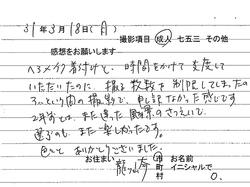 31年3月18日(月)
撮影項目 成人 七五三 その他
感想をお願いします
ヘアメイク着付けと、時間をかけて支度して
いただいたのに、撮る枚数を制限してしまったの
という間の撮影で、申し訳なかった感じです
また違った風景の
また楽しかったです。
色々と ありがとうございました。
お住まい 龍ヶ崎 市 町 村
お名前 イニシャルで
O.